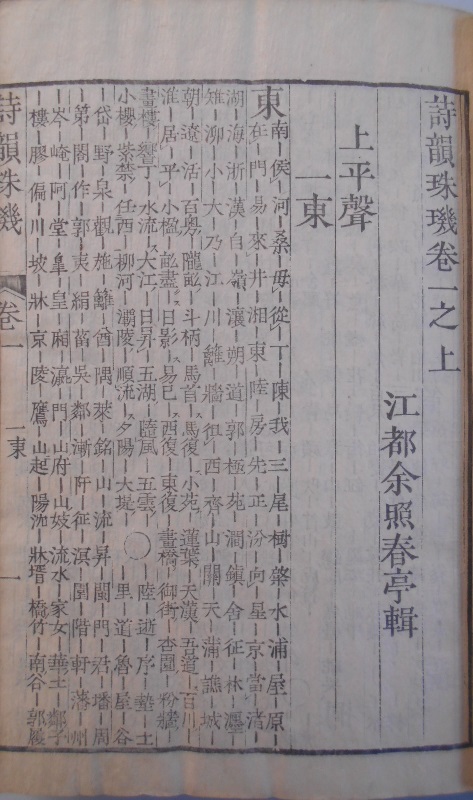 詩韻珠璣卷一之上
江都余照春亭輯
上平聲
一東
東
南｜侯｜河｜桑｜毋｜從｜丁｜陳｜我｜三｜尾｜樹｜槃｜水｜浦｜屋｜原｜
在｜門｜易｜來｜井｜湘｜東｜陸｜房｜先｜正｜汾｜向｜星｜京｜當｜渚｜
湖｜海｜浙｜漢｜白｜嶺｜瀼｜朔｜道｜郭｜極｜苑｜澗｜鎮｜舍｜征｜林｜瀍｜
雉｜泖｜小｜大｜乃｜江｜川｜籬｜牆｜徂｜西｜齊｜山｜關｜天｜蒲｜譙｜城｜
朝｜遠｜活｜百粵｜隴畝｜斗柄｜馬首｜馬復｜小苑｜蓮葉｜天漢｜吾道｜百川｜
淮｜居｜平｜小楹｜畝盡｜日影｜易已｜西復｜東復｜畫橋｜御街｜杏園｜粉牆｜
畫樓｜響丁｜水流｜大江｜日昇｜五湖｜隨風｜五雲｜〇｜陸｜逝｜序｜塾｜士
小樓｜紫禁｜任西｜柳河｜灞陵｜順流｜夕陽｜大堤｜｜里｜道｜魯｜屋｜谷
｜岱｜野｜泉｜觀｜施｜籬｜酋｜隅｜萊｜銘｜山｜流｜昇｜闉｜門｜君｜墦｜周
｜第｜閣｜作｜郭｜夷｜絹｜菑｜吳｜鄰｜漸｜阡｜征｜溟｜圍｜階｜軒｜藩｜州
｜岑｜崦｜阿｜堂｜皐｜皇｜廂｜瀛｜門｜山府｜山妓｜流水｜家女｜華士｜鄰子
｜樓｜膠｜偏｜川｜坡｜牀｜京｜陵｜鷹｜山起｜陽沈｜牀壻｜橋竹｜南谷｜郭履
詩韻珠璣
卷一
一東
一